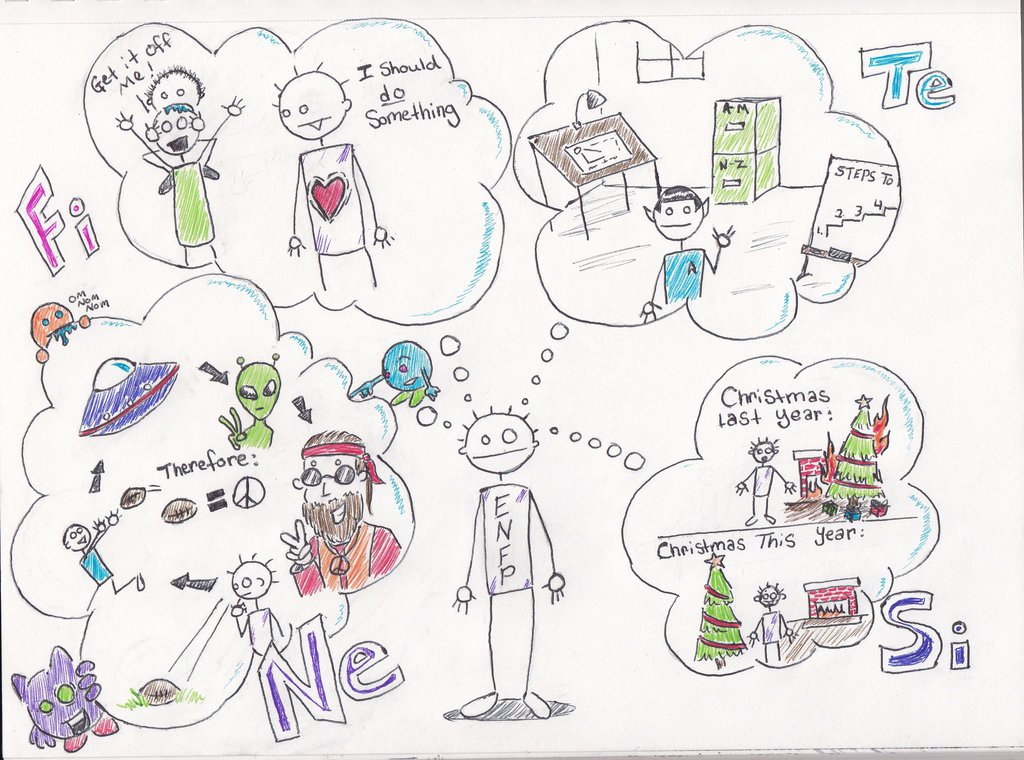 Get it off
Me!
I Should
do
Something
Fi
Te
A-M
N-Z
STEPS TO
1. 2 3 4
A
OM
NOM
NOM
Therefore:
=
Ne
ENFP
Christmas
Last Year:
Christmas This Year:
Si